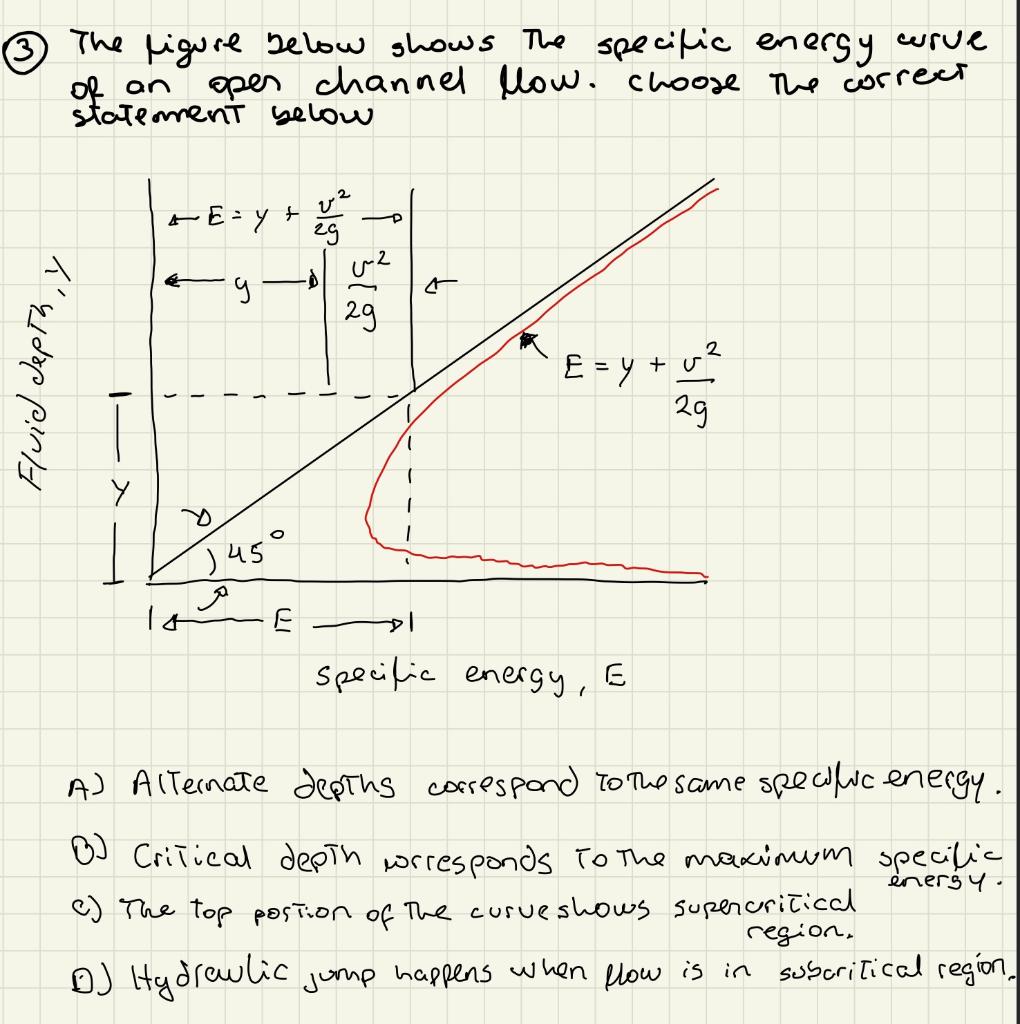 ③ The figure below shows The specific energy curve
of an open channel flow. Choose The correct
statement below
← E = y + v²/2g →
← y → v²/2g ←
Fluid depth, y
E = y + v²/2g
y
45°
E
specific energy, E
A) Alternate depths correspond to the same specific energy.
B) Critical depth corresponds To The maximum specific
energy.
C) The top portion of The curve shows supercritical
region.
D) Hydraulic jump happens when flow is in subcritical region.